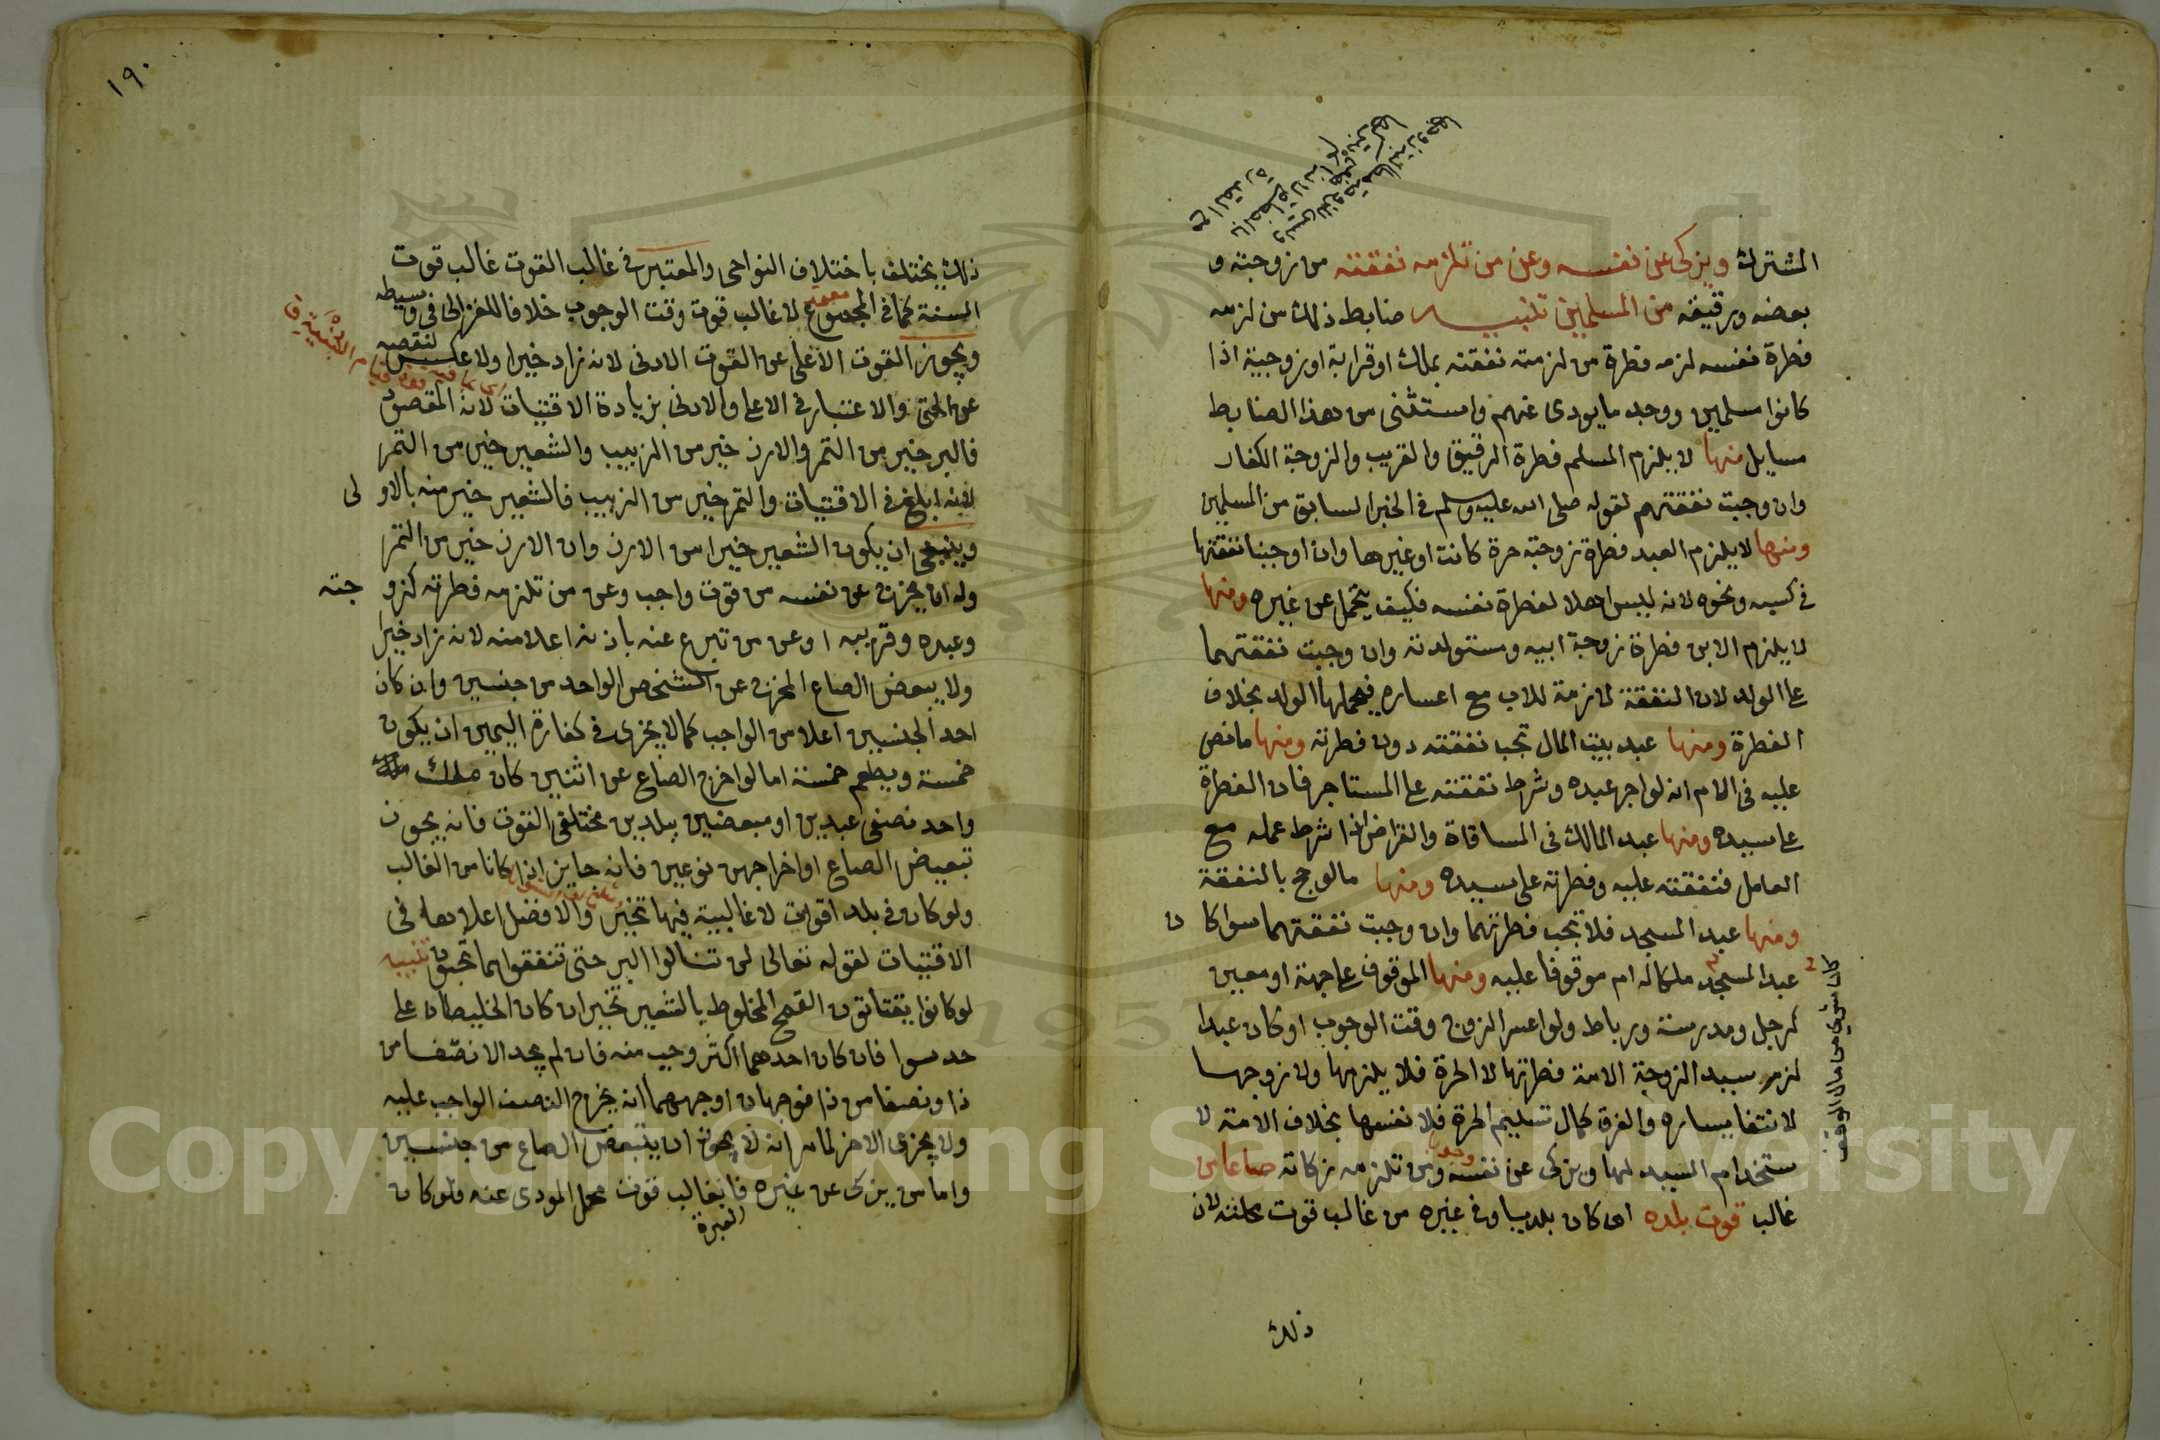 المشترك ويزكى عن نفسه وعن من تلزمه نفقته من زوجته و
بعضه ورقيقه من المسلمين تنبيه ضابط ذلك من لزمه
فطرة نفسه لزمه فطرة من لزمته نفقته بملك او قرابة او زوجية اذا
كانوا مسلمين ووجد ما يودى عنهم واستثنى من هذا الضابط
مسايل منها لا يلزم المسلم فطرة الرقيق والقريب والزوجة الكفار
وان وجبت نفقتهم لقوله صلى الله عليه وسلم فى الخبر السابق من المسلمين
ومنها لا يلزم العبد فطرة زوجته حرة كانت او غيرها وان اوجبنا نفقتها
فى كسبه ونحوه لانه ليس اهلا لفطرة نفسه فكيف يتحمل عن غيره ومنها
لا يلزم الابن فطرة زوجة ابيه ومستولدته وان وجبت نفقتهما
على الولد لان النفقة لازمة للاب مع اعساره فيحملها الولد بخلاف
الفطرة ومنها عبد بيت المال تجب نفقته دون فطرته ومنها ما نص
عليه فى الام انه لو اجر عبده وشرط نفقته على المستاجر فان الفطرة
على سيده ومنها عبد المالك فى المساقاة والقراض اذا شرط عمله مع
العامل فنفقته عليه وفطرته على سيده ومنها ما لو حج بالنفقة
ومنها عبد المسجد فلا تجب فطرتهما وان وجبت نفقتهما سوا كا ن
عبد المسجد ملكا له ام موقوفا عليه ومنها الموقوف على جهة او معين
كرجل ومدرسة ورباط ولو اعسر الزوج وقت الوجوب او كان عبدا
لزم سيد الزوجة الامة فطرتها لا الحرة فلا يلزمها ولا زوجها
لانتفا يساره والفرق كمال تسليم الحرة نفسها بخلاف الامة لا
ستخدام السيد لها ويزكى عن نفسه ومن تلزمه زكاته صاعا من
غالب قوت بلده ان كان بلديا وفى غيره من غالب قوت محلته لان
ذلك
كان اشترى من مال الوقف
١٩٠
ذلك يختلف باختلاف النواحى والمعتبر فى غالب القوت غالب قوت
السنة كما فى المجموع لا غالب قوت وقت الوجوب خلافا للغزالى فى وسيطه
ويجوز القوت الاعلى عن القوت الادنى لانه زاد خيرا ولا عكس لنقصه
عن الحق والاعتبار فى الاعلا والادنى بزيادة الاقتيات لانه المقصود
فالبر خير من التمر والارز خير من الزبيب والشعير خير من التمر
لانه ابلغ فى الاقتيات والتمر خير من الزبيب فالشعير خير منه بالاو لى
وينبغى ان يكون الشعير خيرا من الارز وان الارز خير من التمر
وله ان يخرج عن نفسه من قوت واجب وعن من تلزمه فطرته كزو جته
وعبده وقريبه او عن من تبرع عنه باذنه اعلا منه لانه زاد خيرا
ولا يبعض الصاع المخرج عن الشخص الواحد من جنسين وان كان
احد الجنسين اعلا من الواجب كما لا يجزى فى كفارة اليمين ان يكون
خمسة ويطعم خمسة اما لو اخرج الصاع عن اثنين كان ملك
واحد نصفى عبدين او مبعضين ببلدين مختلفى القوت فانه يجوز
تبعيض الصاع او اخراجه من نوعين فانه جايز اذا كانا من الغالب
ولو كان فى بلد اقوات لا غالبية فيها تخير والافضل اعلاها فى
الاقتيات لقوله تعالى لن تنالوا البر حتى تنفقوا مما تحبون تنبيه
لو كانوا يقتاتون القمح المخلوط بالشعير تخير ان كان الخليطان على
حد سوا فان كان احدهما اكثر وجب منه فان لم يجد الا نصفا من
ذا ونصفا من ذا فوجهان اوجههما انه يخرج النصف الواجب عليه
ولا يجزى الاخر لما مر انه لا يجوز ان يتبعض الصاع من جنسين
واما من يزكى عن غيره فالعبرة بغالب قوت محل المودى عنه فلو كان